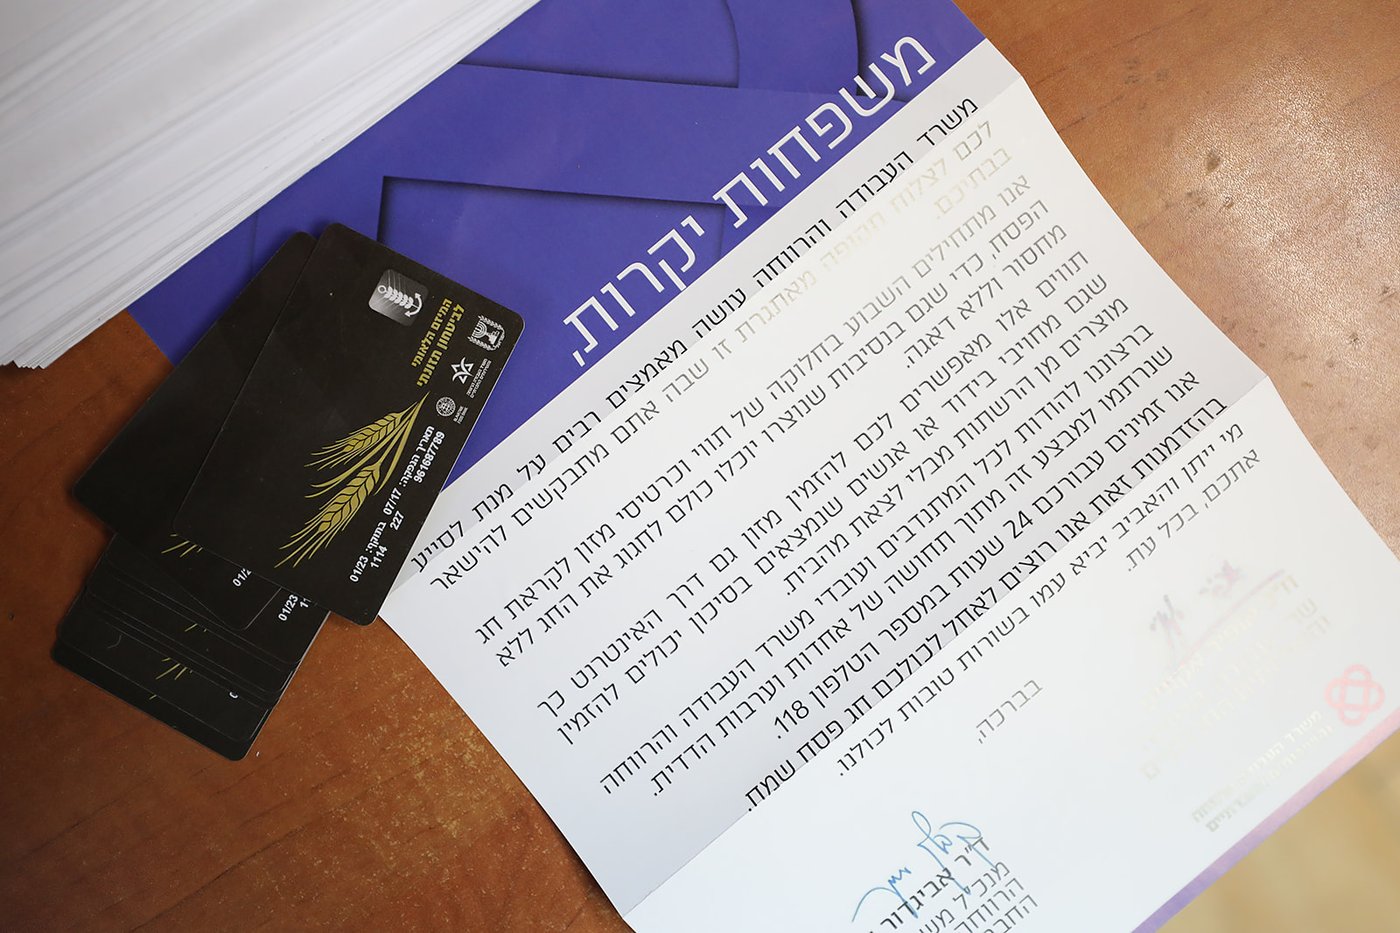 משפחות יקרות,
משרד העבודה והרווחה עושה מאמצים רבים על מנת לסייע
לכם לצלוח תקופה מאתגרת זו שבה אתם מתבקשים להישאר
בבתיכם.
אנו מתחילים השבוע בחלוקה של תווי וכרטיסי מזון לקראת חג
הפסח, כדי שגם בנסיבות שנוצרו יוכלו כולם לחגוג את החג ללא
מחסור וללא דאגה.
תווים אלו מאפשרים לכם להזמין מזון גם דרך האינטרנט כך
שגם מחויבי בידוד או אנשים שנמצאים בסיכון יכולים להזמין
מוצרים מן הרשתות מבלי לצאת מהבית.
ברצוננו להודות לכל המתנדבים ועובדי משרד העבודה והרווחה
שנרתמו למבצע זה מתוך תחושה של אחדות וערבות הדדית.
אנו זמינים עבורכם 24 שעות במספר הטלפון 118.
בהזדמנות זאת אנו רוצים לאחל לכולכם חג פסח שמח.
מי ייתן והאביב יביא עמו בשורות טובות לכולנו.
אתכם, בכל עת.
בברכה,
ד"ר אביגדור
מנכ"ל
הרווחה
משרד העבודה הרווחה
המיזם הלאומי
לביטחון תזונתי
תאריך הנפקה: 07/17 בתוקף: 01/23
961687789 227 1114
01/2
01/23